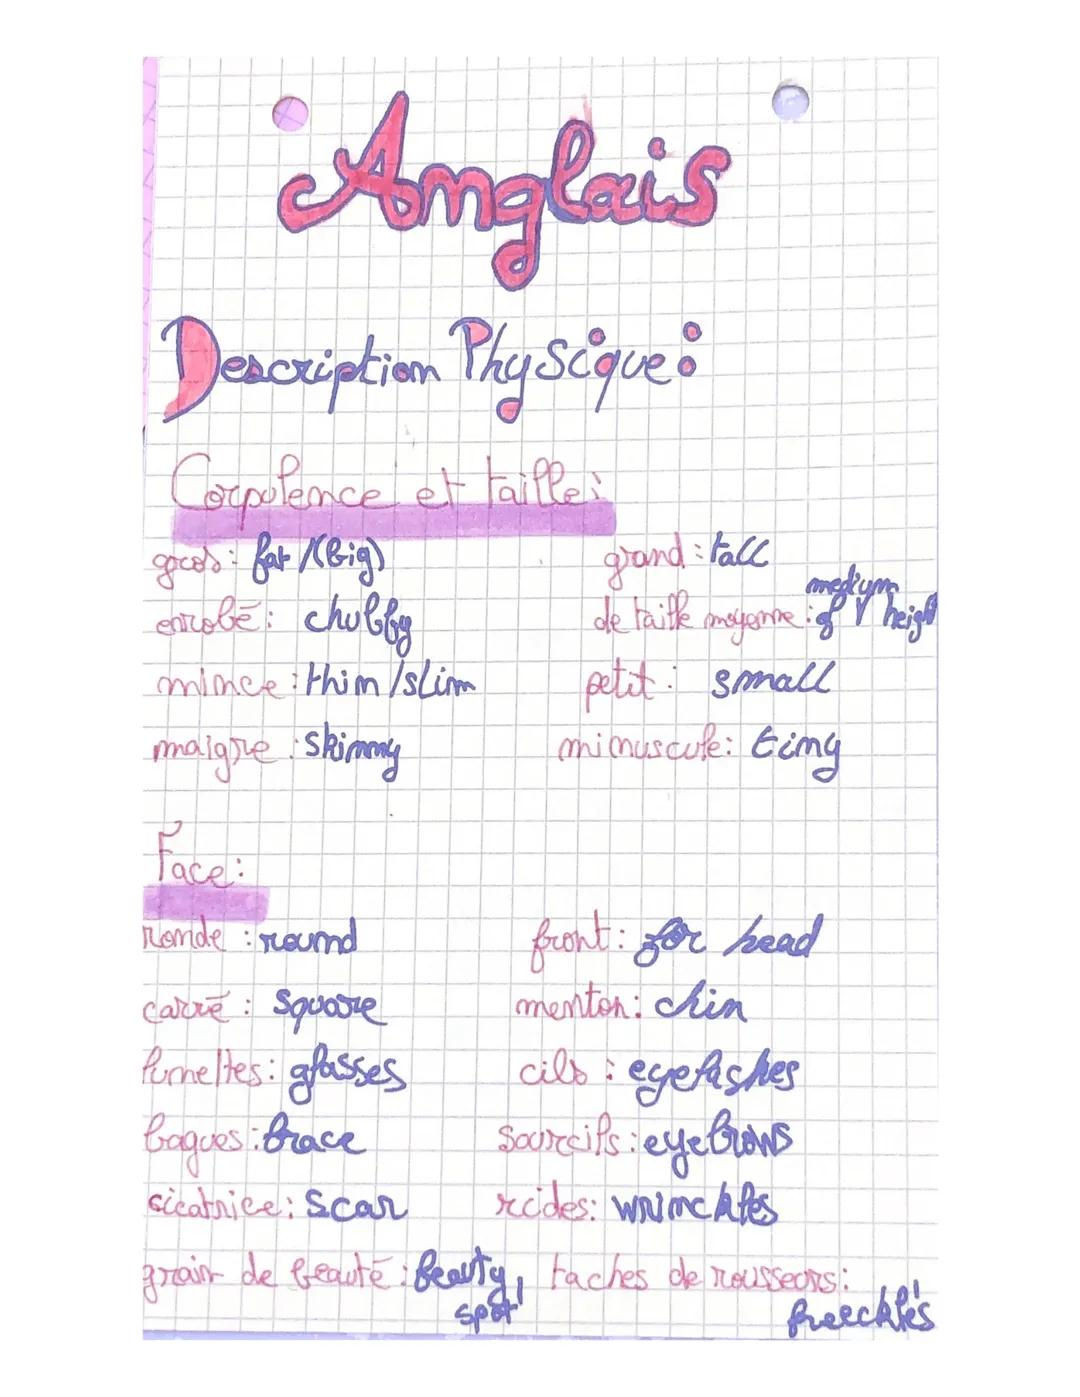 Anglais
Description Physique :
Corpulence et taille :
gros : fat / (big) grand : tall
enrobé : chubby de taille moyenne : of medium height
mince : thin / slim petit : small
maigre : skinny minuscule : tiny
Face :
ronde : round front : for head
carré : square menton : chin
lunettes : glasses cils : eyelashes
bagues : brace sourcils : eyebrows
cicatrice : scar rides : wrinckles
grain de beauté : beauty spot taches de rousseurs : freeckles